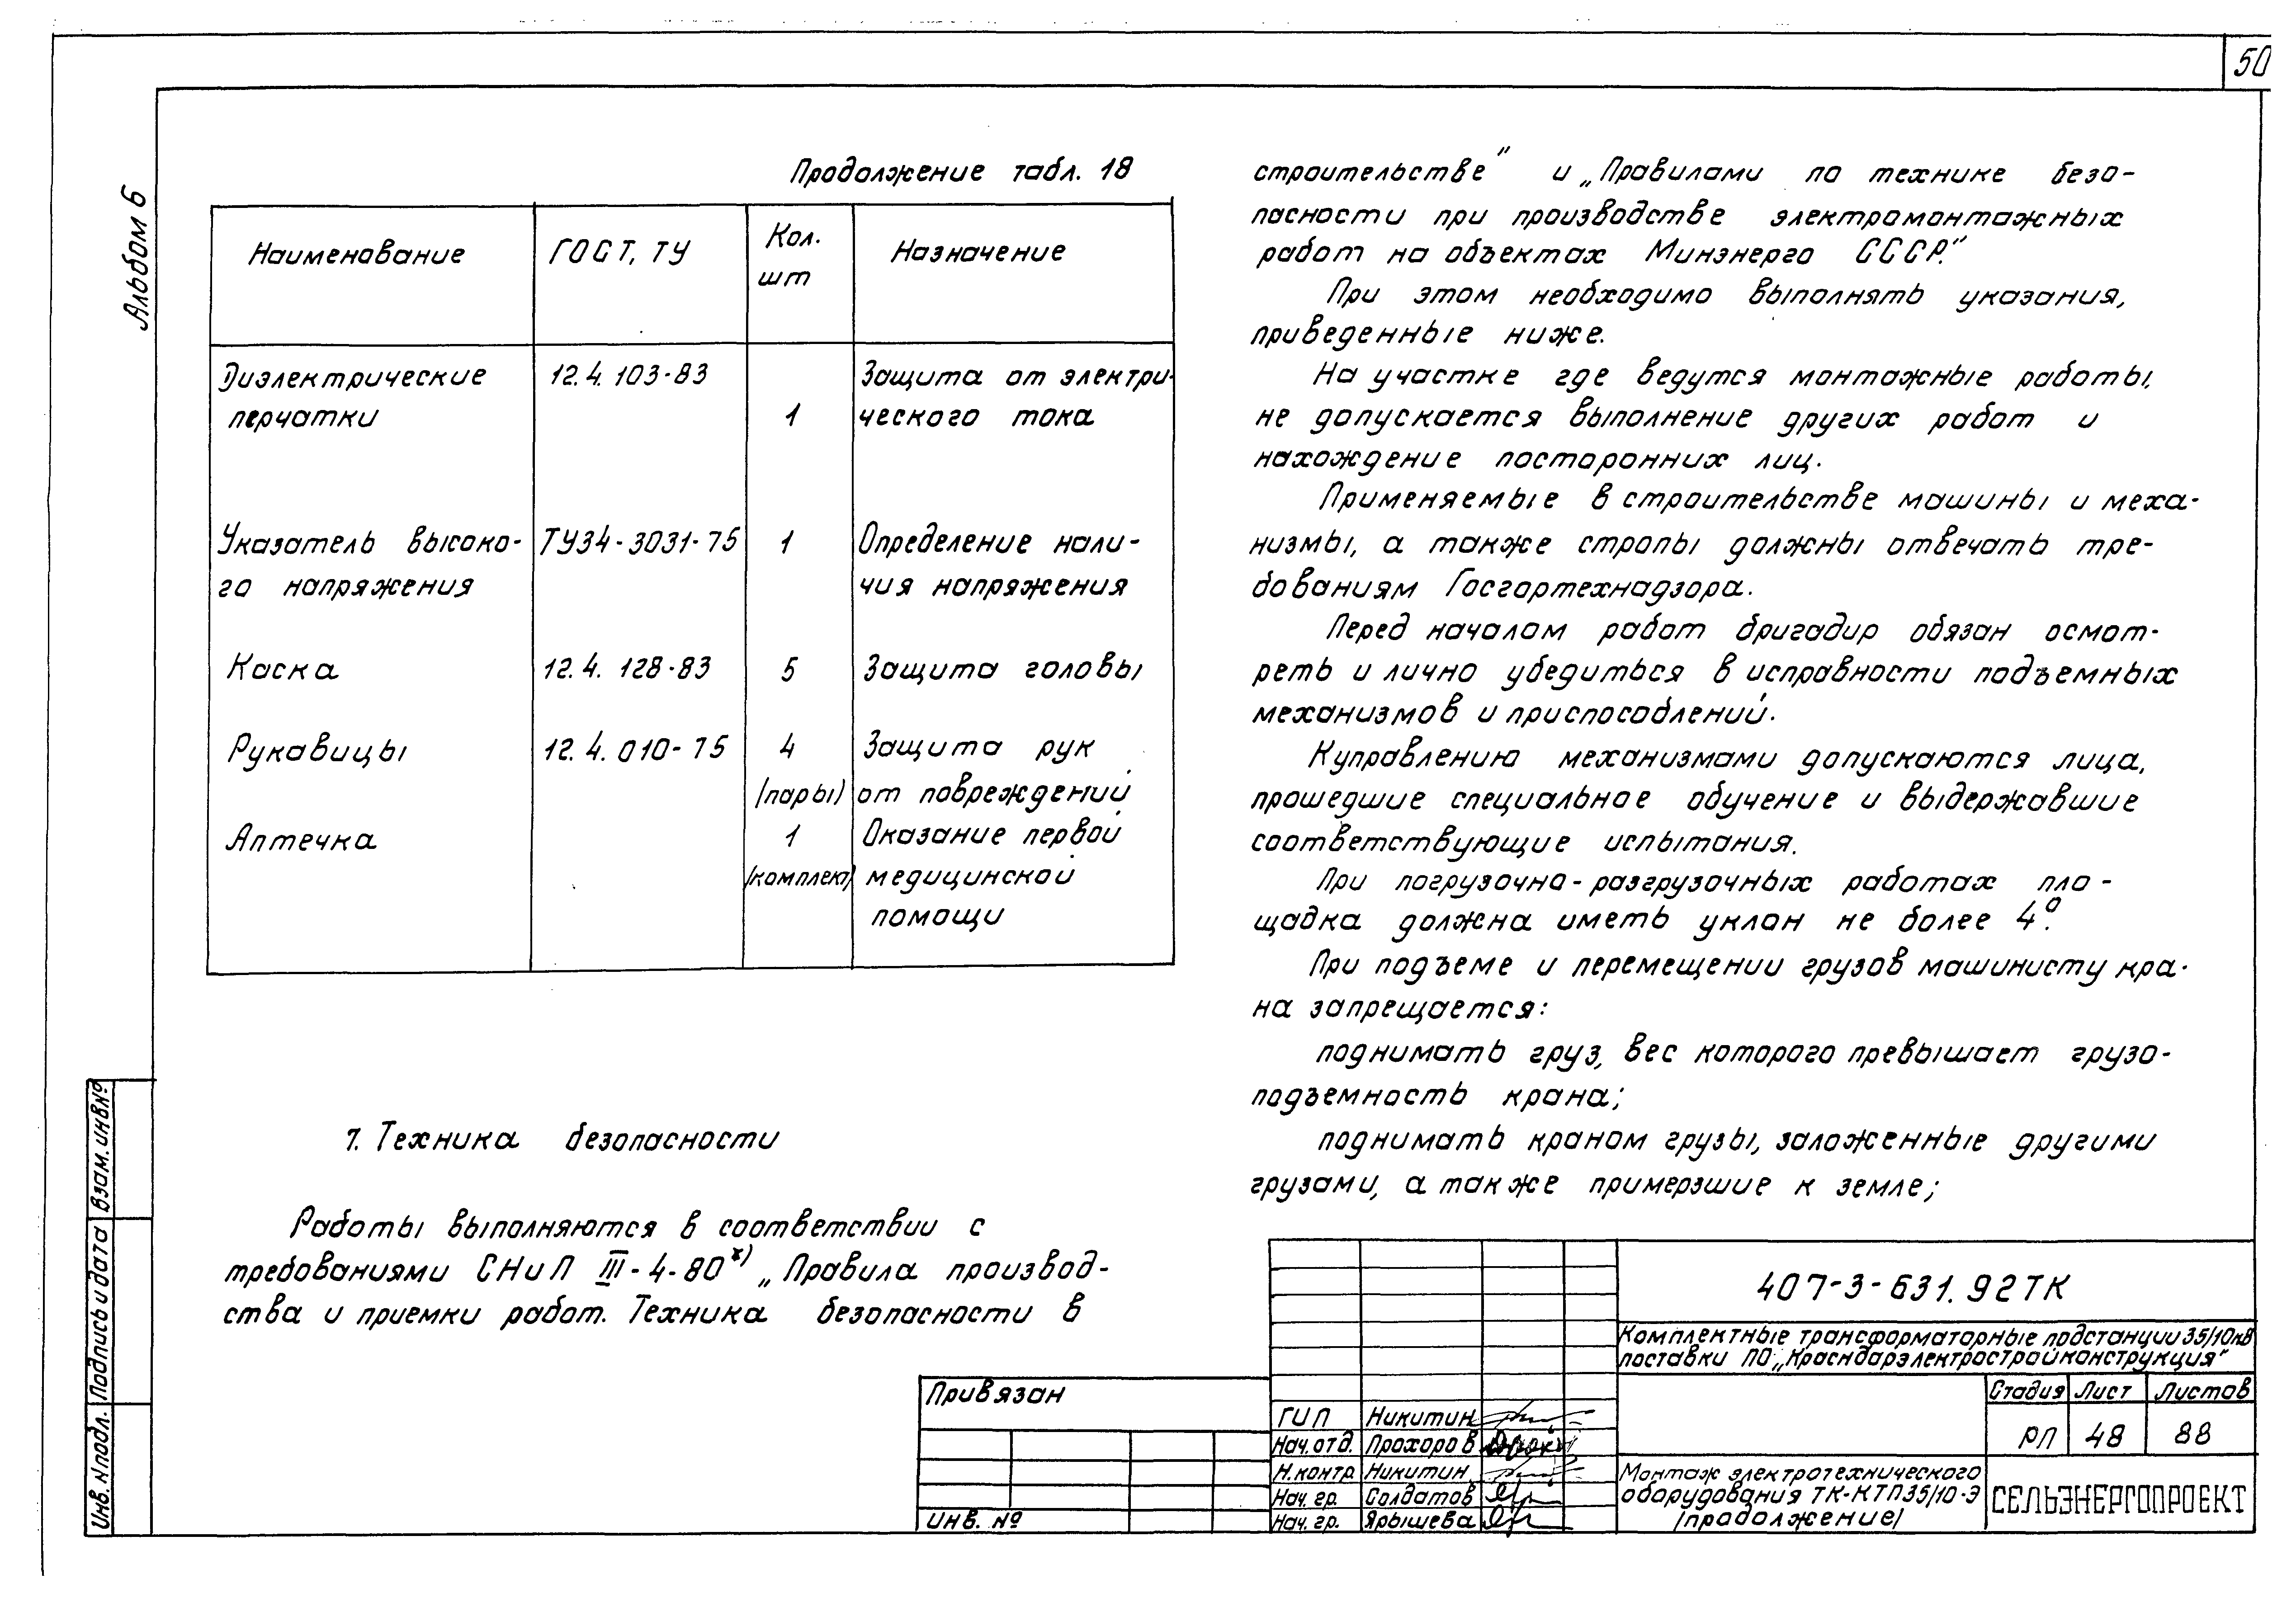 50
Альбом 6
Продолжение табл. 18
Наименование ГОСТ, ТУ Кол. шт Назначение
Диэлектрические 12.4.103-83 Защита от электри-
перчатки 1 ческого тока
Указатель высоко- ТУ34-3031-75 1 Определение нали-
го напряжения чия напряжения
Каска 12.4.128-83 5 Защита головы
Рукавицы 12.4.010-75 4 Защита рук
/пары) от повреждений
Аптечка 1 Оказание первой
/комплект/ медицинской
помощи
7. Техника безопасности
Работы выполняются в соответствии с
требованиями СНиП III-4-80х) „Правила производ-
ства и приемки работ. Техника безопасности в
строительстве" и „Правилами по технике безо-
пасности при производстве электромонтажных
работ на объектах Минэнерго СССР."
При этом необходимо выполнять указания,
приведенные ниже.
На участке где ведутся монтажные работы,
не допускается выполнение других работ и
нахождение посторонних лиц.
Применяемые в строительстве машины и меха-
низмы, а также стропы должны отвечать тре-
бованиям Госгортехнадзора.
Перед началом работ бригадир обязан осмот-
реть и лично убедиться в исправности подъемных
механизмов и приспособлений.
К управлению механизмами допускаются лица,
прошедшие специальное обучение и выдержавшие
соответствующие испытания.
При погрузочно-разгрузочных работах пло-
щадка должна иметь уклон не более 4°.
При подъеме и перемещении грузов машинисту кра-
на запрещается:
поднимать груз, вес которого превышает грузо-
подъемность крана;
поднимать краном грузы, заложенные другими
грузами, а также примерзшие к земле;
Инв. N подл. Подпись и дата Взам. инв. №
Привязан
Инв. №
ГИП Никитин
Нач. отд. Прохоров
Н. контр. Никитин
Нач. гр. Солдатов
Нач. гр. Ярышева
407-3-631.92 ТК
Комплектные трансформаторные подстанции 35/10кВ
поставки ПО „Краснодарэлектростройконструкция"
Стадия Лист Листов
РП 48 88
Монтаж электротехнического
оборудования ТК-КТП 35/10-Э
/продолжение/
СЕЛЬЭНЕРГОПРОЕКТ